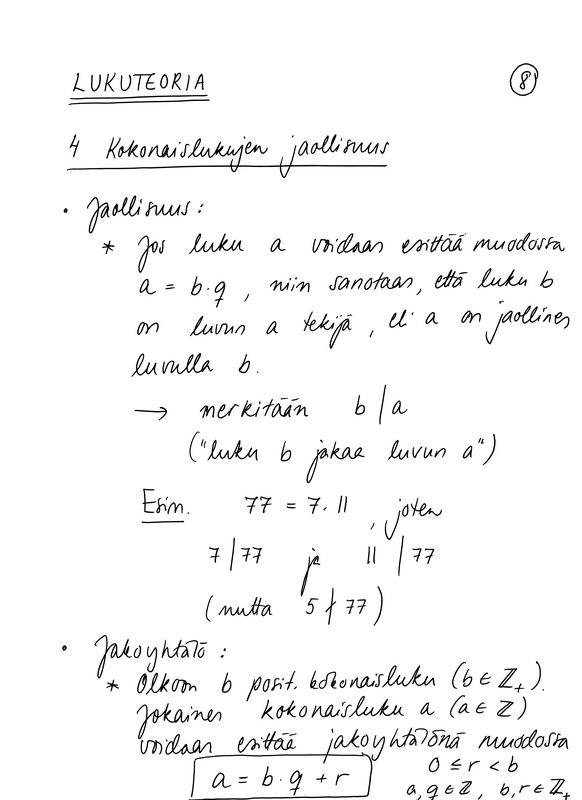 LUKUTEORIA
8
4 Kokonaislukujen jaollisuus
• Jaollisuus:
* Jos luku a voidaan esittää muodossa
a = b·q, niin sanotaan, että luku b
on luvun a tekijä, eli a on jaollinen
luvulla b.
→ merkitään b | a
("luku b jakaa luvun a")
Esim. 77 = 7·11, joten
7 | 77 ja 11 | 77
(mutta 5 ∤ 77)
• Jakoyhtälö:
* Olkoon b posit. kokonaisluku (b ∈ ℤ₊).
Jokainen kokonaisluku a (a ∈ ℤ)
voidaan esittää jakoyhtälönä muodossa
a = b·q + r
0 ≤ r < b
a, q ∈ ℤ, b, r ∈ ℤ₊